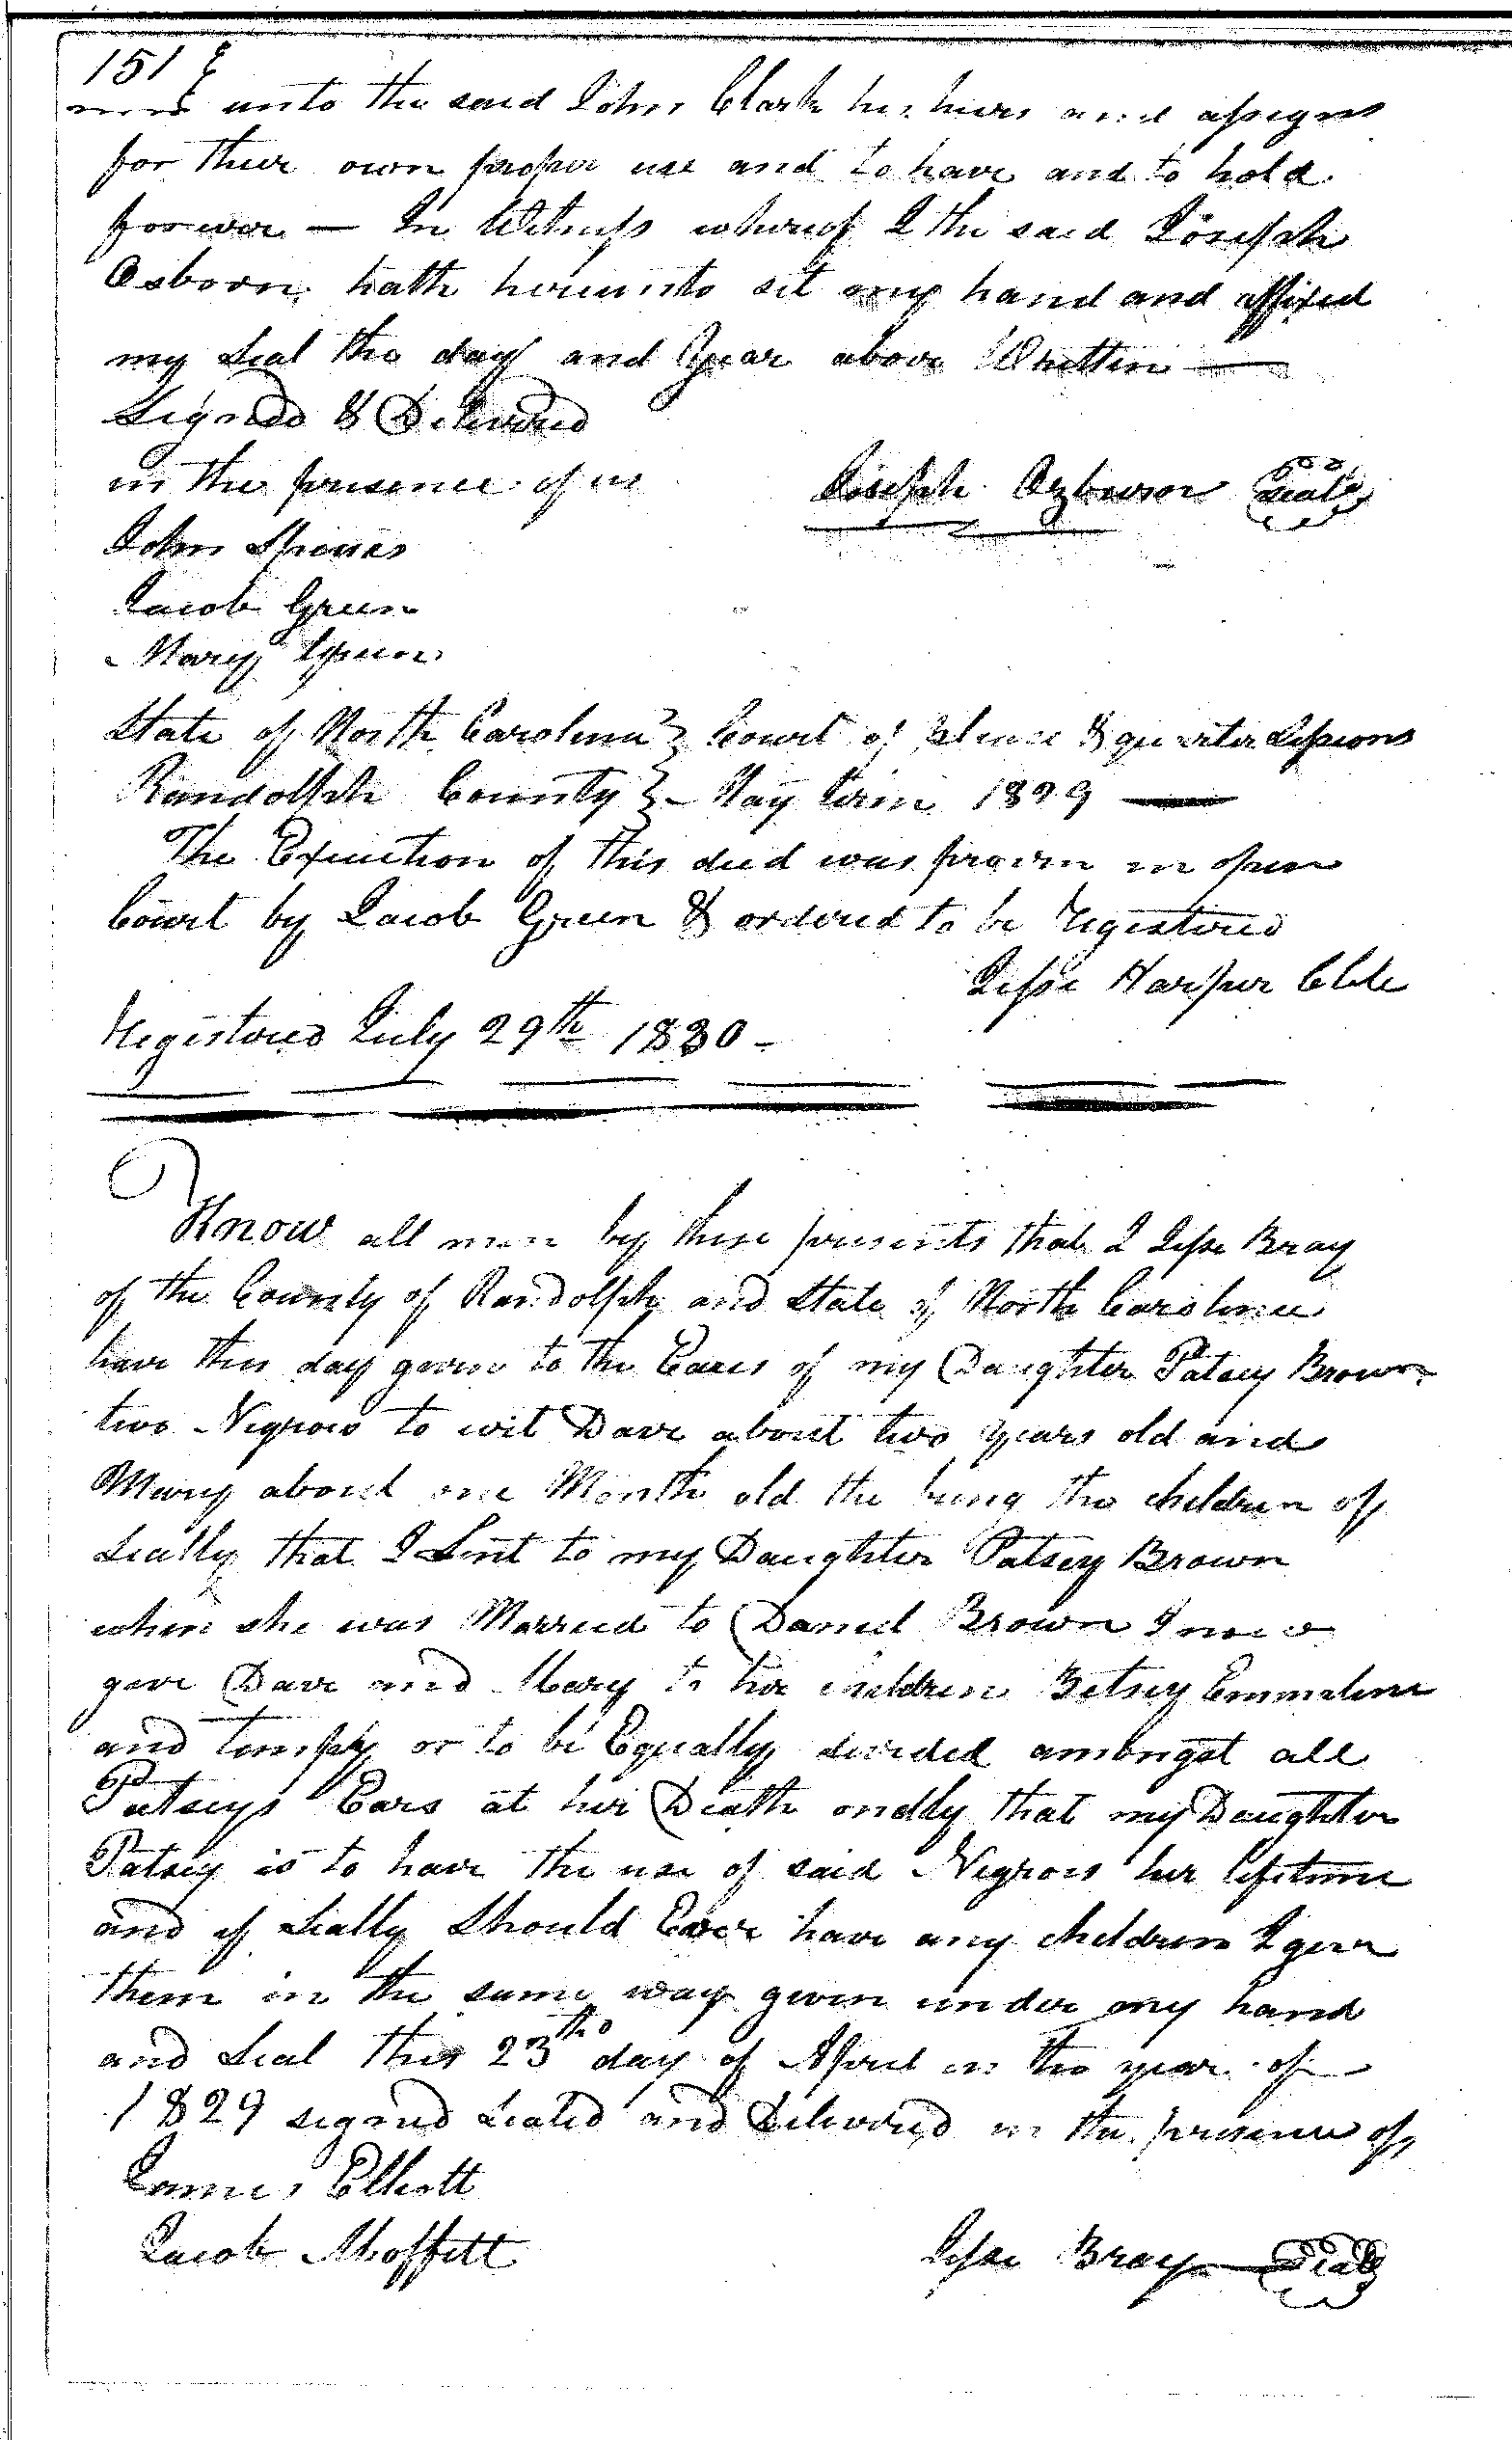 151 E
mine unto the said John Clark his heirs and assigns
for their own proper use and to have and to hold
forever — In Witness whereof I the said Joseph
Osborn hath hereunto set my hand and affixed
my seal the day and year above Written —
Signed & Delivered
in the presence of us
Joseph Ozburn Seal
John Spieues
Jacob Green
Mary Green
State of North Carolina } Court of Pleas & quarter Sessions
Randolph County } May Term 1829 —
The Execution of this deed was proven in open
Court by Jacob Green & ordered to be registered
Jesse Harper Clk
Registered July 29th 1830 -
Know all men by these presents that I Jesse Bray
of the County of Randolph and State of North Carolina
have this day given to the Eares of my Daughter Patsey Brown
two Negroes to wit Dave about two years old and
Mary about one Month old the being the children of
Sealley that I Lent to my Daughter Patsey Brown
when she was Married to Daniel Brown I now
give Dave and Mary to her children Betsey Emmaline
and Tempy or to be Equally divided amongst all
Patseys Ears at her Death onelly that my Daughter
Patsey is to have the use of said Negroes her lifetime
and if Sealley Should Ever have any children I give
them in the same way given under my hand
and Seal this 23th day of April in the year of
1829 signed Sealed and Delivered in the presence of
James Elliott
Jacob Moffett
Jesse Bray — Seal